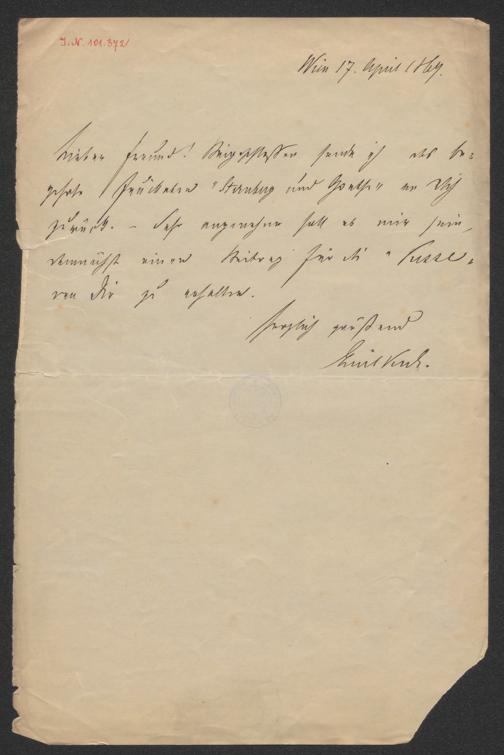 I.N. 101.372
Wien 17. April 1869.
Lieber Freund! Beigeschlossen sende ich das be-
gehrte "Sternberg und Goethe" an Dich
zurück. – Sehr angenehm soll es mir sein,
demnächst einen Beitrag für die "
von Dir zu erhalten.
Herzlich grüßend
Emil